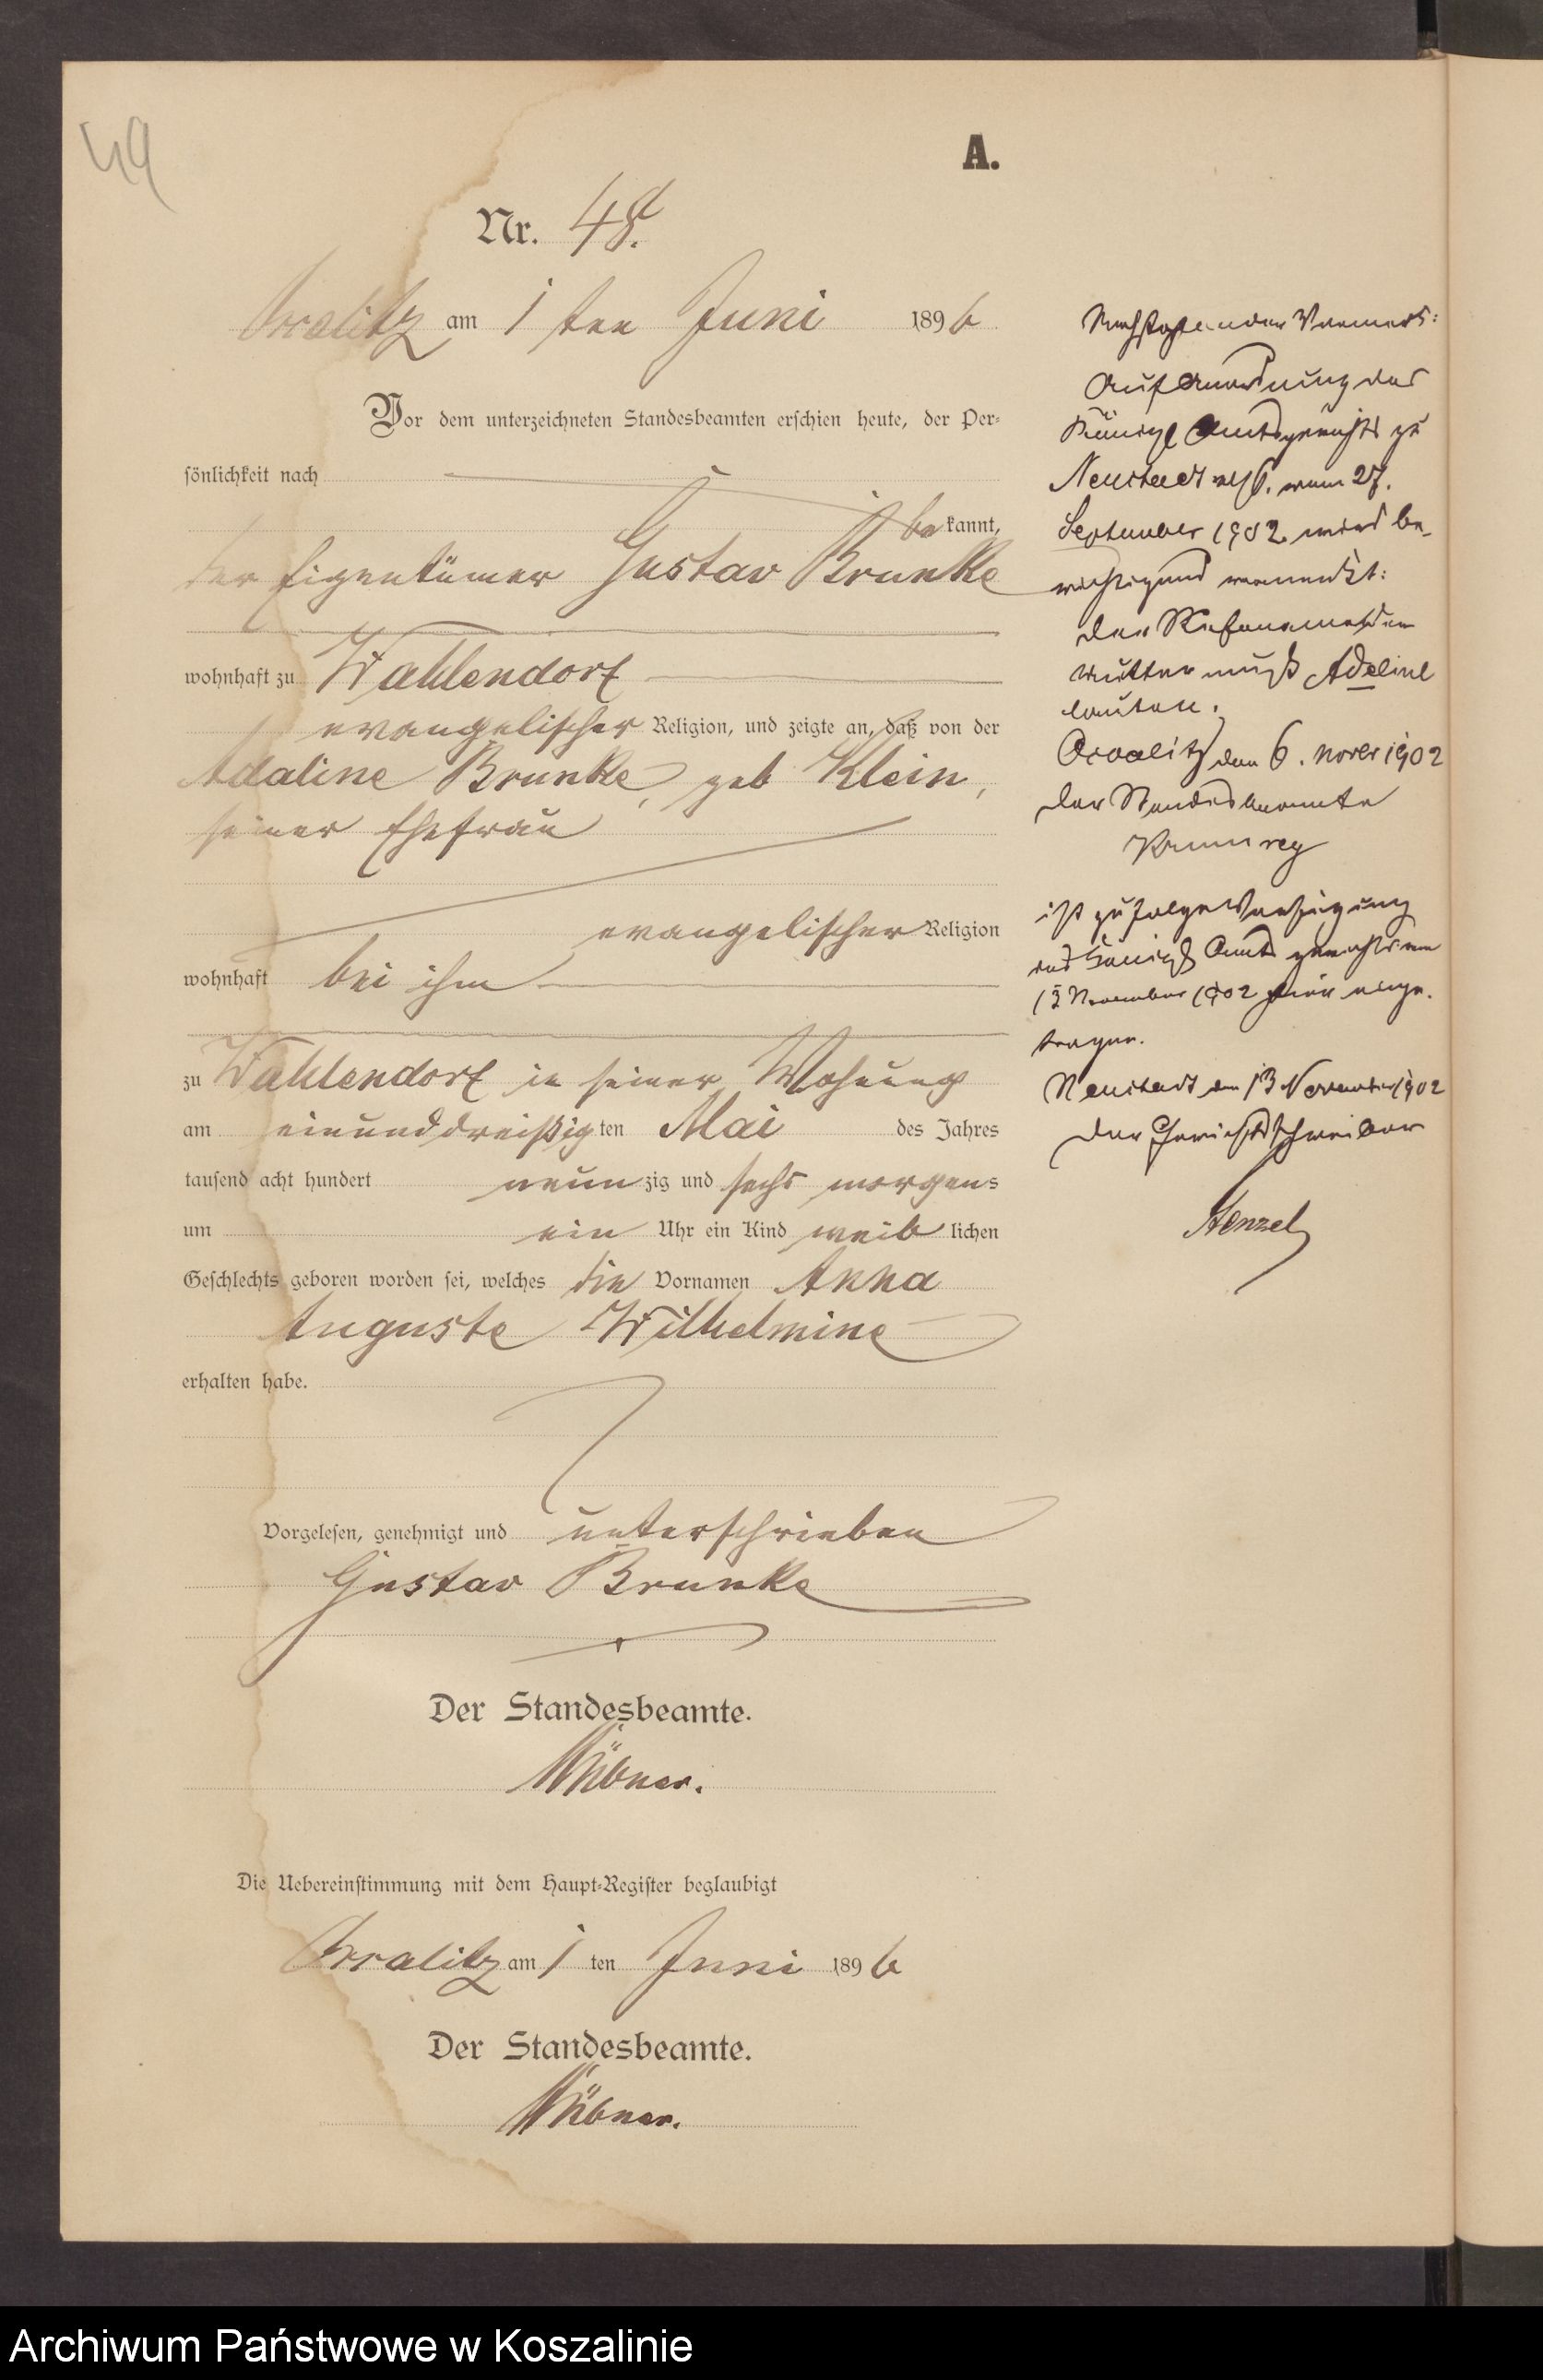 49
A.
Nr. 48.
Occalitz am 1 ten Juni 1896
Vor dem unterzeichneten Standesbeamten erschien heute, der Per-
sönlichkeit nach
bekannt,
der Eigentümer Gustav Brunke
wohnhaft zu Wahlendorf
evangelischer Religion, und zeigte an, daß von der
Adaline Brunke, geb Klein,
seiner Ehefrau
evangelischer Religion
wohnhaft bei ihm
zu Wahlendorf in seiner Wohnung
am einunddreißigten Mai des Jahres
tausend acht hundert neunzig und sechs morgens
um ein Uhr ein Kind weiblichen
Geschlechts geboren worden sei, welches die Vornamen Anna
Auguste Wilhelmine
erhalten habe.
Vorgelesen, genehmigt und unterschrieben
Gustav Brunke
Der Standesbeamte.
Die Uebereinstimmung mit dem Haupt-Register beglaubigt
Occalitz am 1 ten Juni 1896
Der Standesbeamte.
Nachstehender Vermerk:
Auf Anordnung des
Königl Amtsgerichts zu
Neustadt w/p. vom 27.
September 1902 wird be-
richtigend vermerkt:
der Rufname der
Mutter muß Adeline
lauten.
Occalitz den 6. Novbr 1902
Der Standesbeamte
Krumrey
ist zufolge Verfügung
des Königl Amtsgerichts vom
13 November 1902 hier einge-
tragen.
Neustadt den 13 November 1902
Der Gerichtsschreiber
Henzel
Archiwum Państwowe w Koszalinie